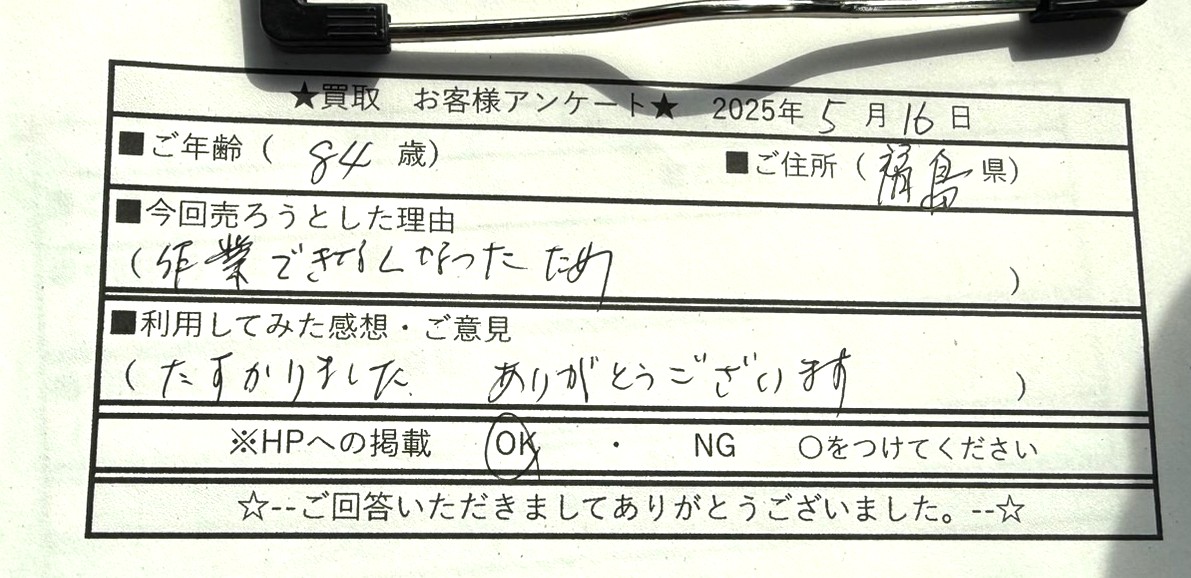 ★買取 お客様アンケート★ 2025年 5 月 16 日
■ご年齢( 84 歳) ■ご住所(福島県)
■今回売ろうとした理由
(作業できなくなったため)
■利用してみた感想・ご意見
(たすかりました。 ありがとうございます)
※HPへの掲載 OK ・ NG 〇をつけてください
☆--ご回答いただきましてありがとうございました。--☆